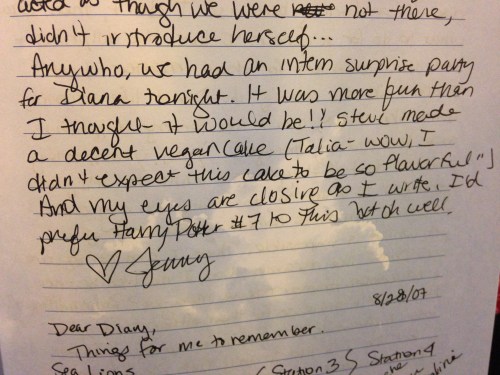 acted as though we were not there,
didn't introduce herself...
Anywho, we had an intern surprise party
for Diana tonight. It was more fun than
I thought it would be!! Steve made
a decent vegan cake (Talia- "wow, I
didn't expect this cake to be so flavorful")
And my eyes are closing as I write. I'd
prefer Harry Potter #7 to this but oh well.
♡ Jenny
8/28/07
Dear Diary,
Things for me to remember.
Sea Lions (Station 3) Station 4